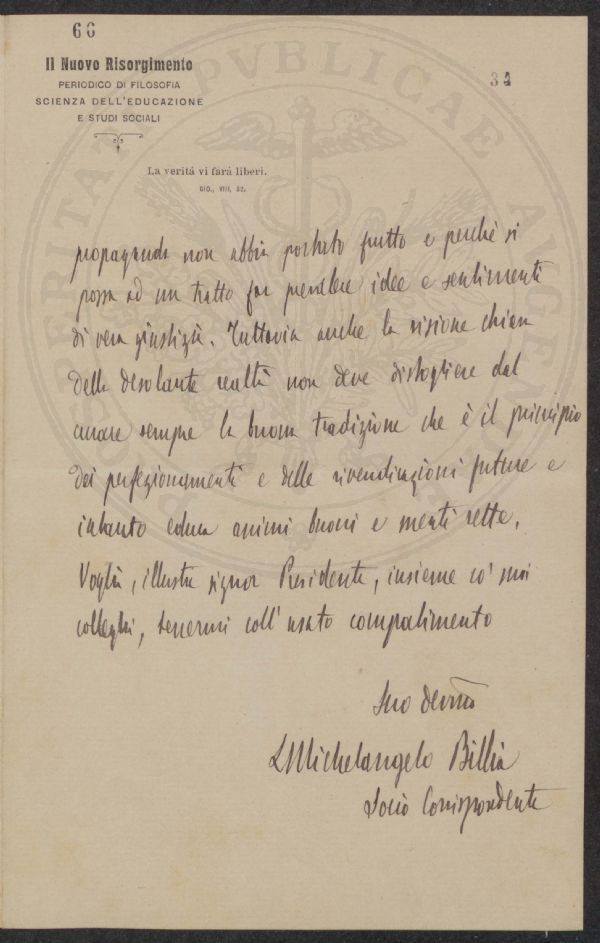 60
34
Il Nuovo Risorgimento
PERIODICO DI FILOSOFIA
SCIENZA DELL'EDUCAZIONE
E STUDI SOCIALI
La verità vi farà liberi.
GIO., VIII, 32.
propaganda non abbia portato frutto e perchè si
possa ad un tratto far prevalere idee e sentimenti
di vera giustizia. Tuttavia anche la visione chiara
della desolante realtà non deve distogliere dal
amare sempre la buona tradizione che è il principio
dei perfezionamenti e delle rivendicazioni future e
intanto educa animi buoni e menti rette.
Voglia, illustre signor Presidente, insieme co' suoi
colleghi, tenermi coll' usato compatimento
Suo devmo
LMichelangelo Billia
Socio Corrispondente
PROSPERITATI PVBLICAE AVGENDAE